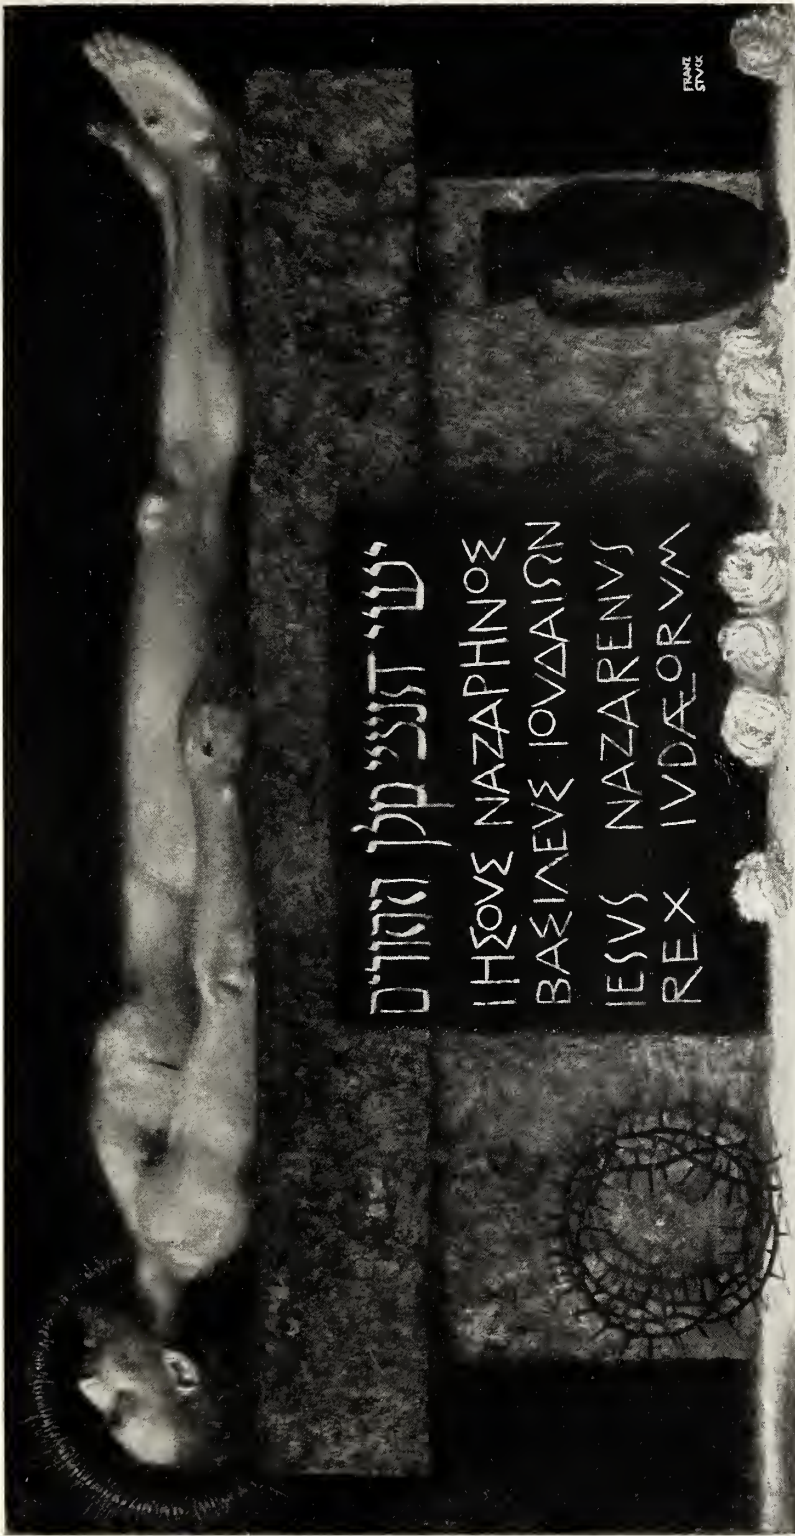 ישוי הנצרי מלך היהודים
ΙΗΣΟΥΣ ΝΑΖΑΡΗΝΟΣ
ΒΑΣΙΛΕΥΣ ΙΟΥΔΑΙΩΝ
IESVS NAZARENVS
REX IVDÆORVM
FRANZ
STVCK